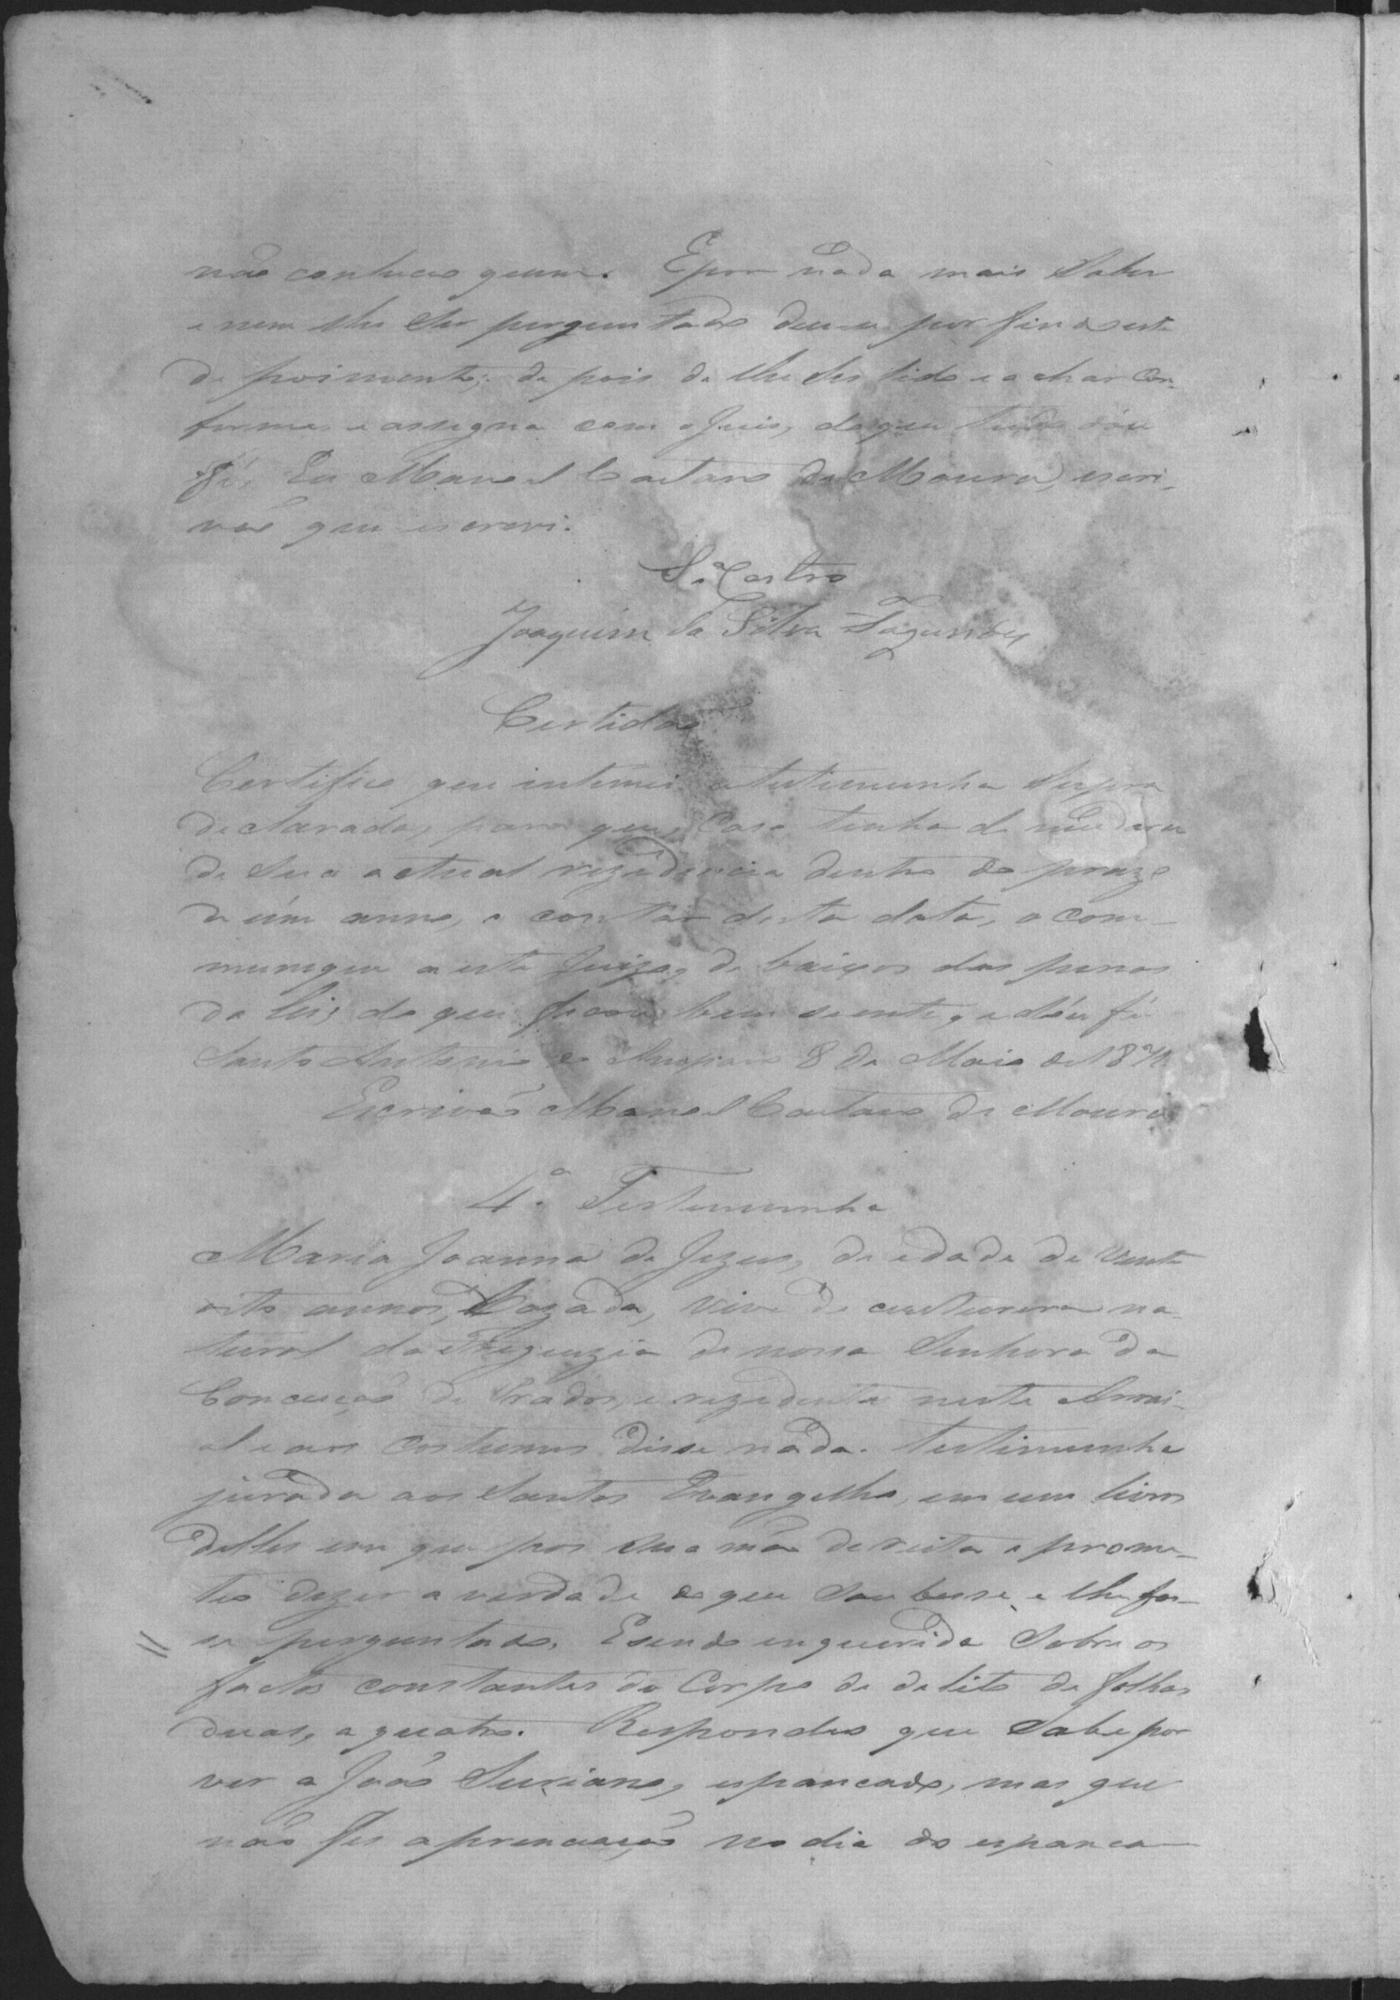 não conheceo quem. E por nada mais Saber
e nem lhe Ser perguntado deu-se por findo este
de poimento; de pois de lhe Ser lido e achar Con-
forme, e assigna com o Juis, do que tudo dou
fé. Eu Manoel Caetano de Moura, escri-
vão que escrevi.
S.ª Castro
Joaquim da Silva Fagundes
Certidão
Certifico que intimei a testimunha Supra
declarada, para que, Caso tenha de mudar-se
de Sua actual rezidencia dentro do prazo
de úm anno, a contar desta data, o com-
munique a este Juizo, de baixos das penas
da lei; do que ficou bem sciente, e dou fé
Santo Antonio do Amparo 8 de Maio de 18
Escrivão Manoel Caetano de Moura
4.ª Testemunha
Maria Joanna de Jezus, de edade de vinte
oito annos, Cazada, vive de custureira na-
tural da Freguezia de nossa Senhora da
Conceição de Prados, e rezidente neste Arrai-
al e aos Costumes disse nada. testimunha
jurada aos Santos Evangelhos, em um livro
delles em que pos Sua mão dereita e prome-
teo dizer a verdade do que Soubesse e lhe fos-
se perguntado. E sendo enquerida Sobre os
factos constantes do Corpo de delito de folhas
duas, a quatro. Respondeo que Sabe por
ver a João Suriano, espancado, mas que
não fes apreniação no dia do espanca-